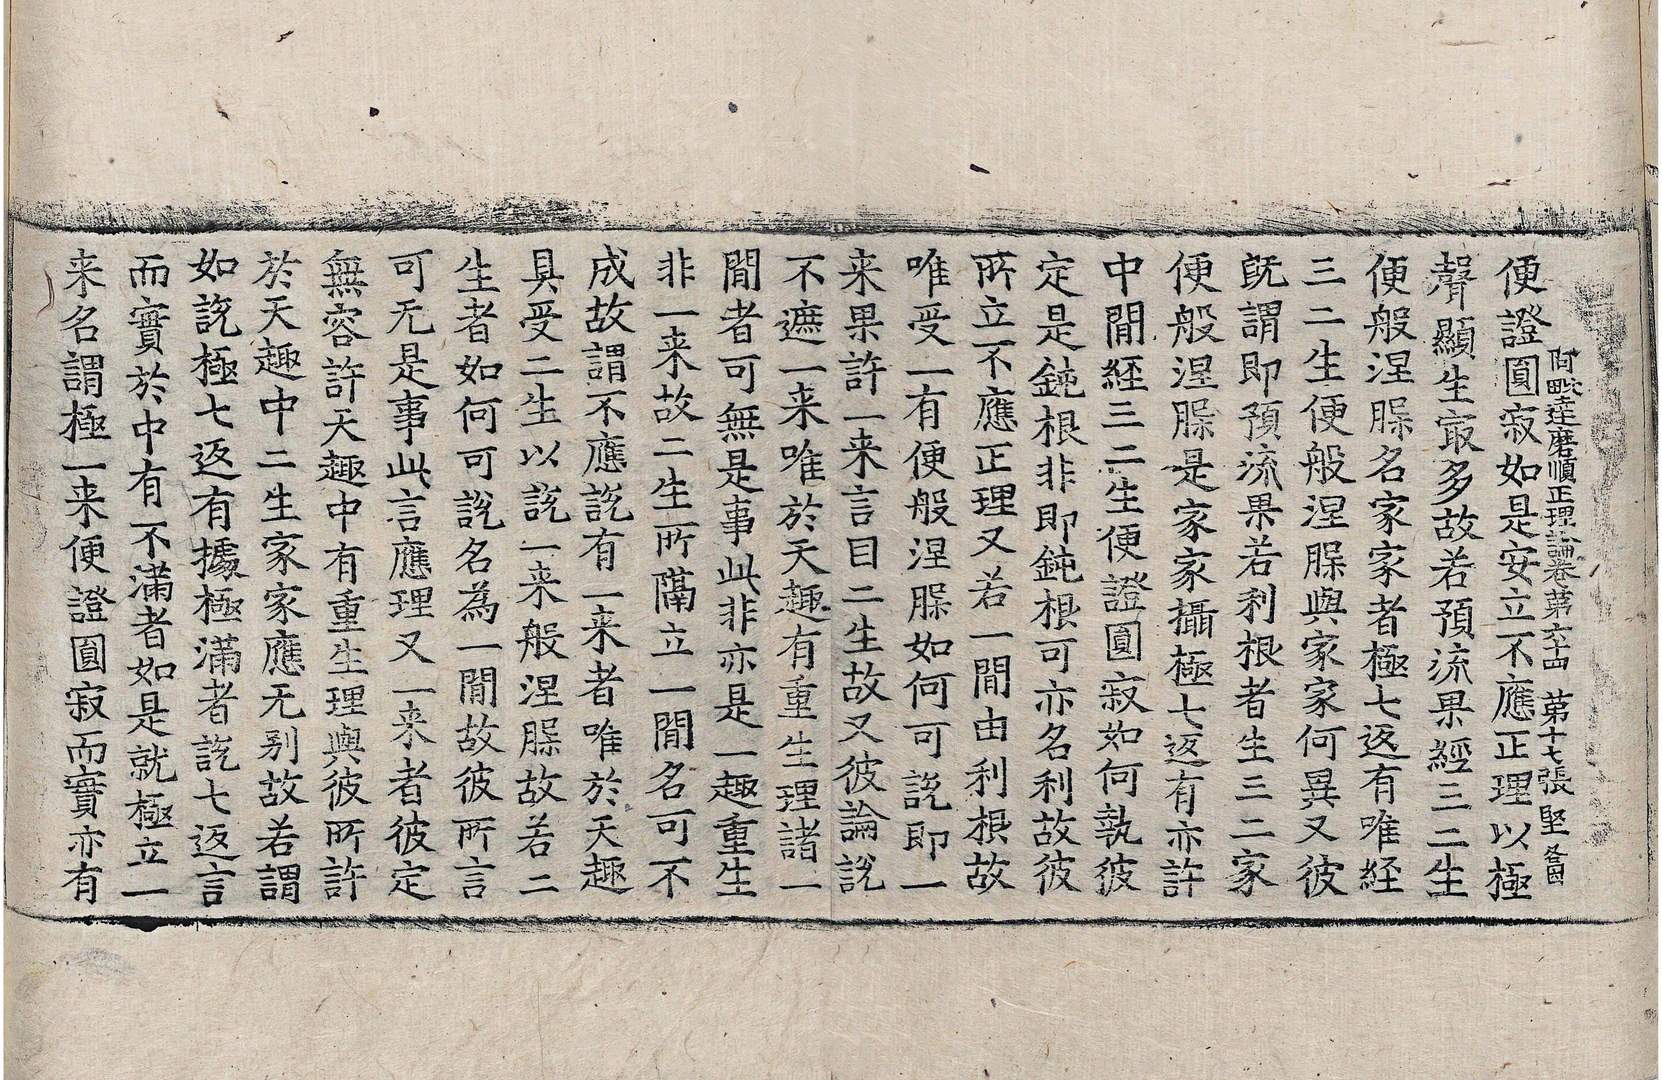 阿毗達磨順正理論卷第六十四 第十七張 堅
便證圓寂如是安立不應正理以極
聲顯生㝡多故若預流果經三二生
便般涅槃名家家者極七返有唯経
三二生便般涅槃與家家何異又彼
旣謂即預流果若利根者生三二家
便般涅槃是家家攝極七返有亦許
中閒経三二生便證圓寂如何執彼
定是鈍根非即鈍根可亦名利故彼
所立不應正理又若一閒由利根故
唯受一有便般涅槃如何可說即一
来果許一来言目二生故又彼論說
不遮一来唯於天趣有重生理諸一
閒者可無是事此非亦是一趣重生
非一来故二生所隔立一閒名可不
成故謂不應說有一来者唯於天趣
具受二生以說一来般涅槃故若二
生者如何可說名為一閒故彼所言
可无是事此言應理又一来者彼定
無容許天趣中有重生理與彼所許
於天趣中二生家家應无别故若謂
如說極七返有據極滿者說七返言
而實於中有不滿者如是就極立一
来名謂極一来便證圓寂而實亦有